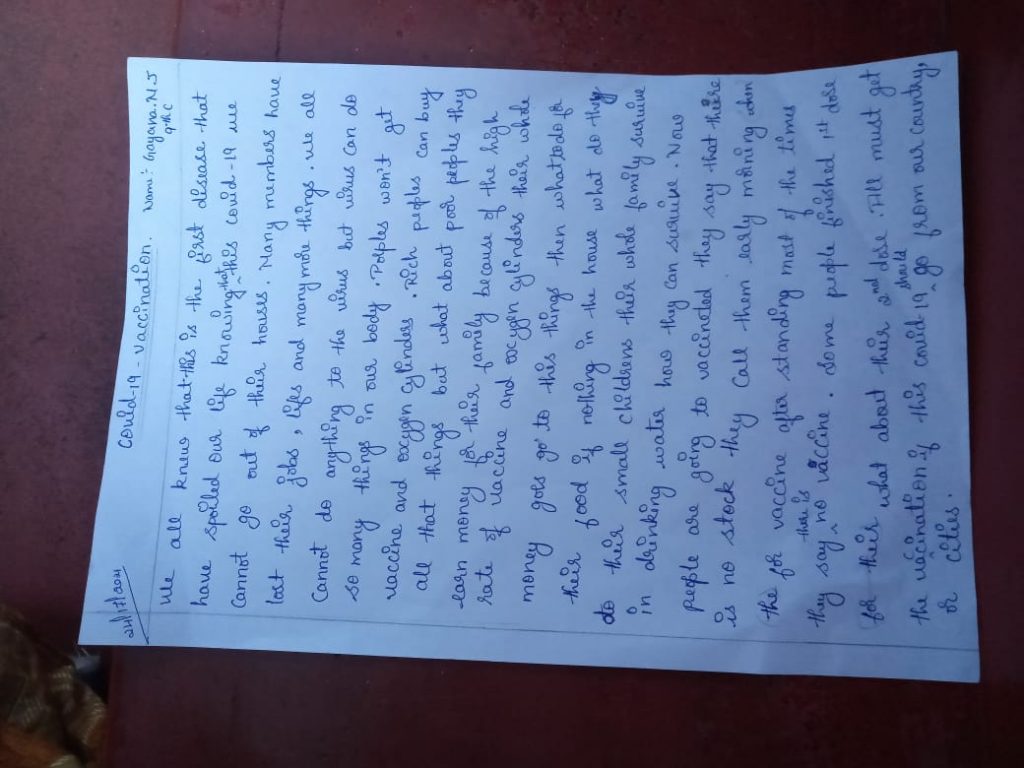 24/7/2021
Covid-19 - vaccination. Name:- Gayana.N.J
9th C
We all knews that this is the first disease that
have spoiled our life knowing that this covid-19 we
cannot go out of their houses. Many members have
lost their jobs, lifes and many more things. We all
cannot do anything to the virus but virus can do
so many things in our body. Polples won't get
vaccine and oxcygen cylinders. Rich peoples can buy
all that things but what about poor peoples they
earn money for their family because of the high
rate of vaccine and oxcygen cylinders their whole
money goes go to this things then what to do for
their food if nothing in the house what do they
do their small childrens their whole family survive
in drinking water how they can survive. Now
people are going to vaccinated they say that there
is no stock they call them early morning when
the for vaccine after standing most of the times
they say their is no vaccine. Some people finished 1st dose
for their what about their 2nd dose. All must get
the vaccination if this covid-19 should go from our country,
or cities.